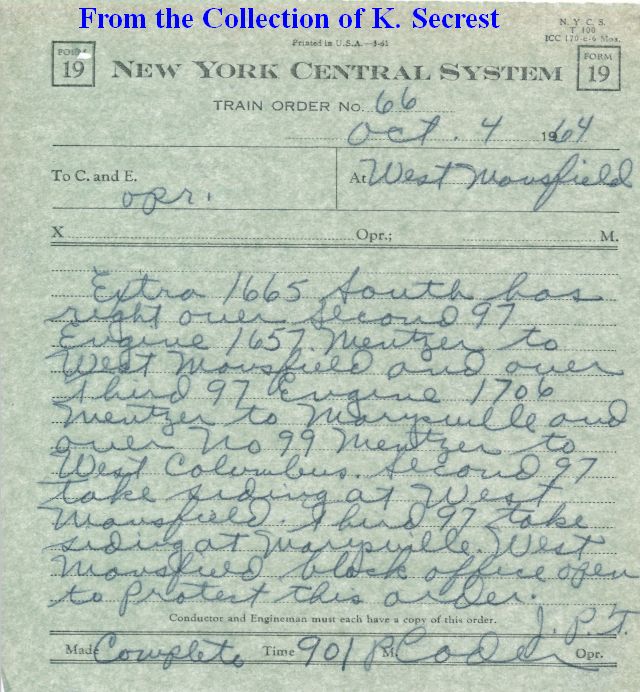 From the Collection of K. Secrest
N. Y. C. S.
T 100
ICC 170-c-6 Mos.
Printed in U.S.A.—3-61
FORM
19
NEW YORK CENTRAL SYSTEM
FORM
19
TRAIN ORDER NO. 66
Oct. 4 1964
To C. and E. opr.
At West Mansfield
X Opr.; M.
Extra 1665 South has
right over Second 97
Engine 1657 Mentzer to
West Mansfield and over
Third 97 Engine 1706
Mentzer to Marysville and
over No 99 Mentzer to
West Columbus. Second 97
take siding at West
Mansfield. Third 97 take
siding at Marysville. West
Mansfield block office open
to Protect this order.
J. P. T.
Conductor and Engineman must each have a copy of this order.
Made Complete Time 901 P M. Coder Opr.